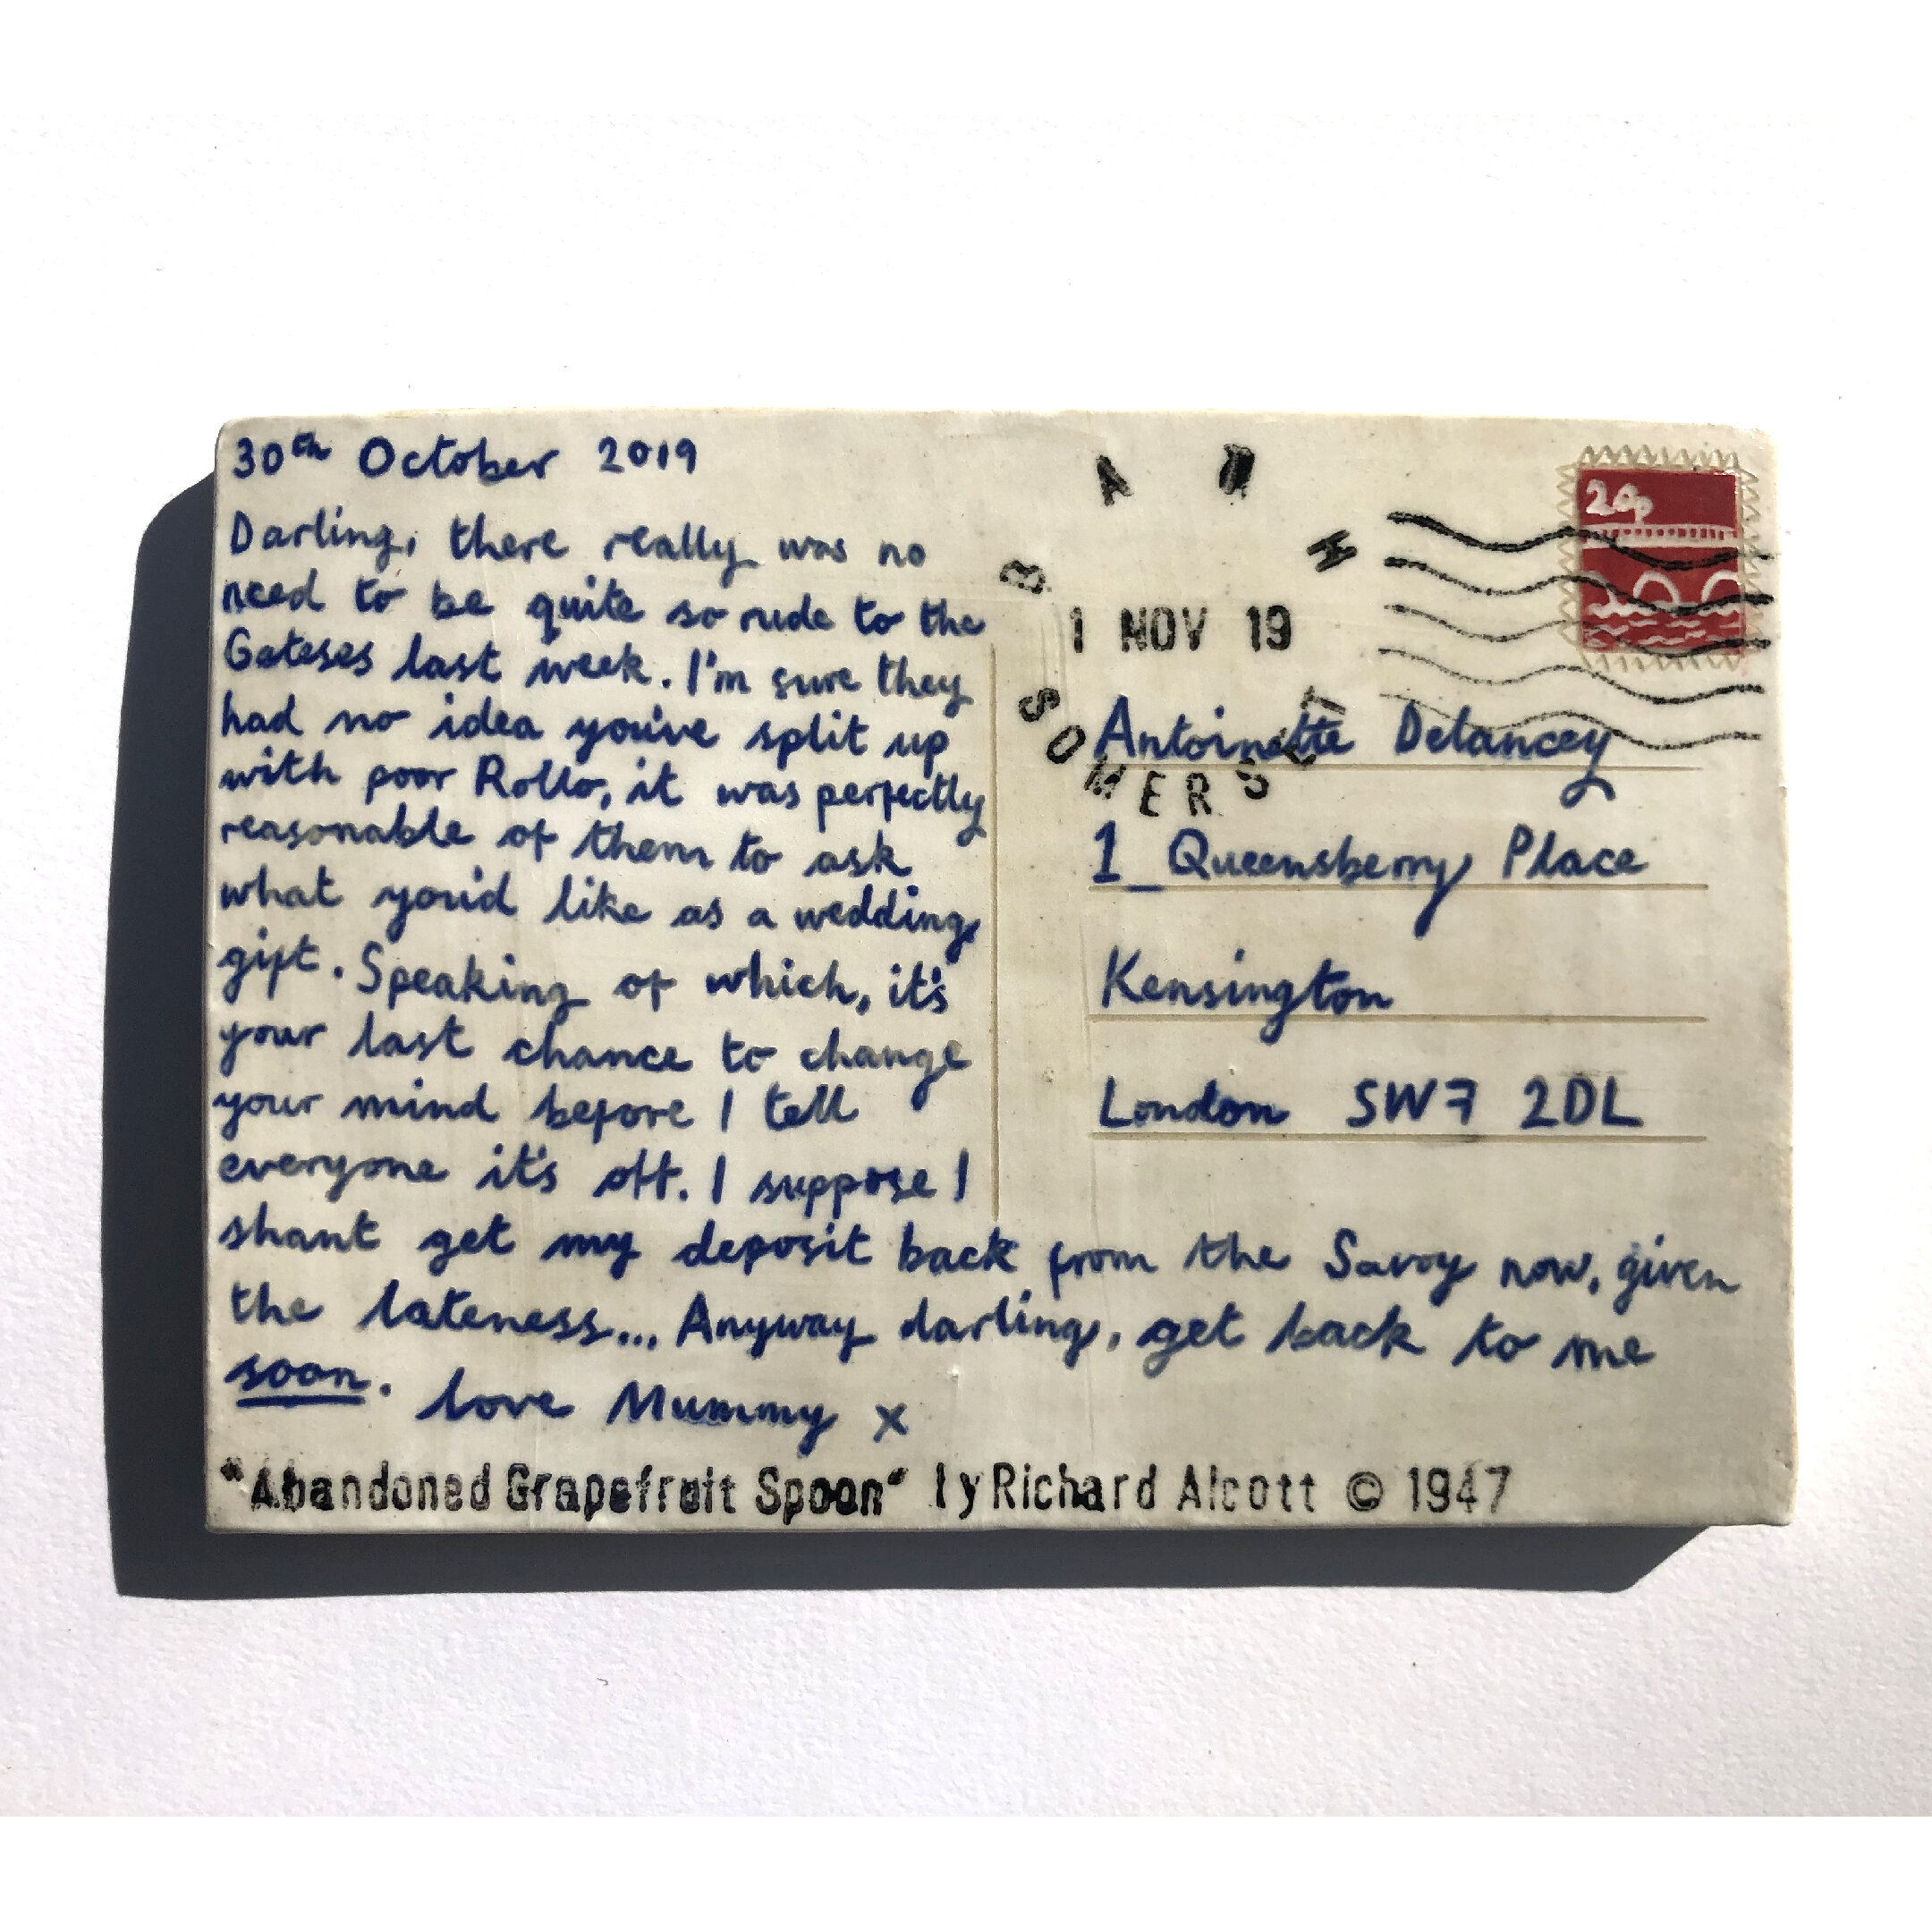 30th October 2019
Darling, there really was no
need to be quite so rude to the
Gateses last week. I'm sure they
had no idea you've split up
with poor Rollo, it was perfectly
reasonable of them to ask
what you'd like as a wedding
gift. Speaking of which, it's
your last chance to change
your mind before I tell
everyone it's off. I suppose I
shant get my deposit back from the Savoy now, given
the lateness... Anyway darling, get back to me
soon. love Mummy x
"Abandoned Grapefruit Spoon" by Richard Alcott © 1947
BATH
1 NOV 19
SOMERSET
20p
Antoinette Delancey
1 Queensberry Place
Kensington
London SW7 2DL